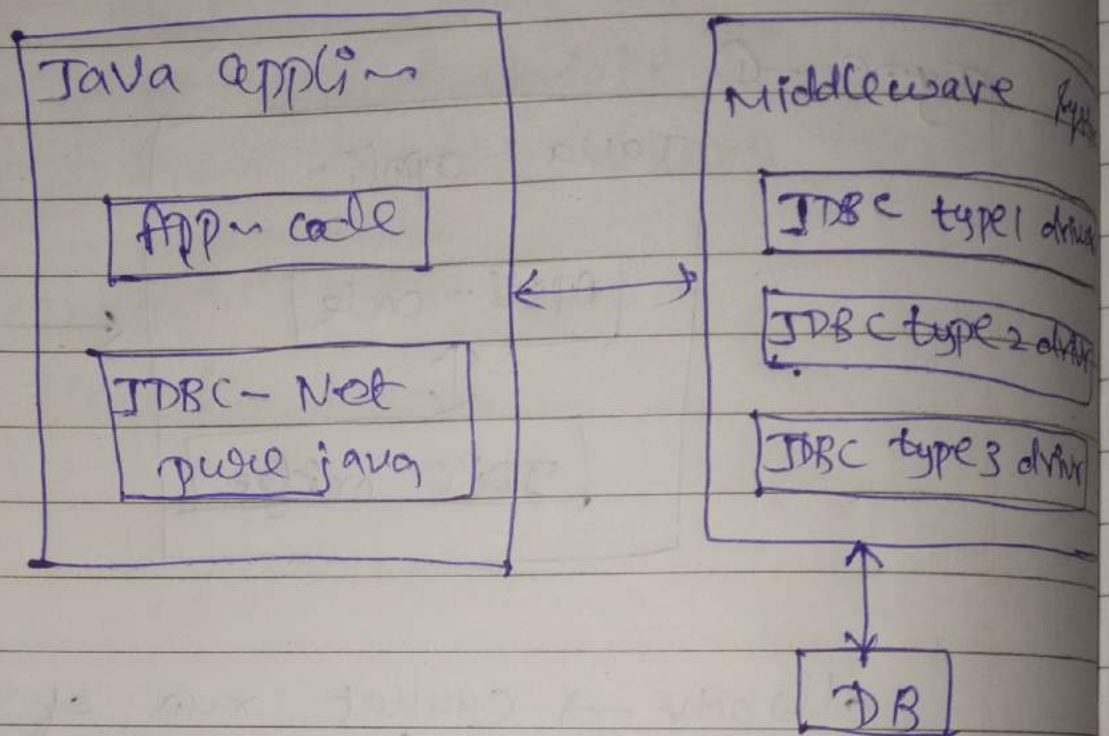 Java appli~
App~ code
JDBC - Net
pure java
Middleware
JDBC type1 driver
JDBC type2 driver
JDBC type3 drivr
DB